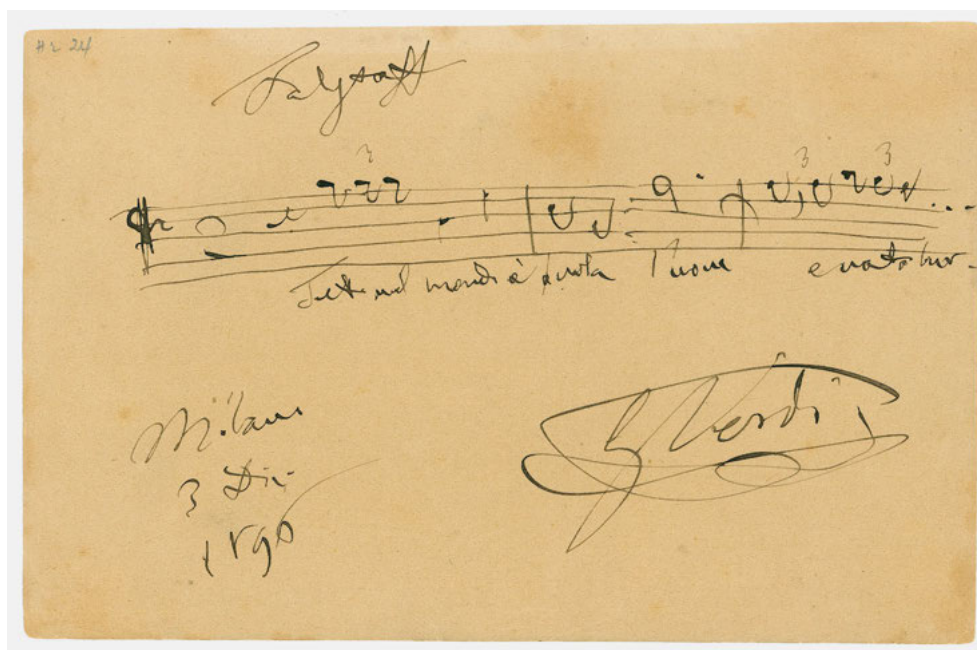 Falstaff
3 3 3
Tutto nel mondo è burla l'uom e nato bur-
Milano
3 Dic
G Verdi